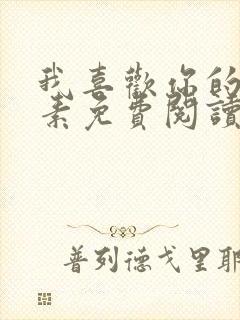 我喜歡你的
素免費閱讀
普列德戈里耶